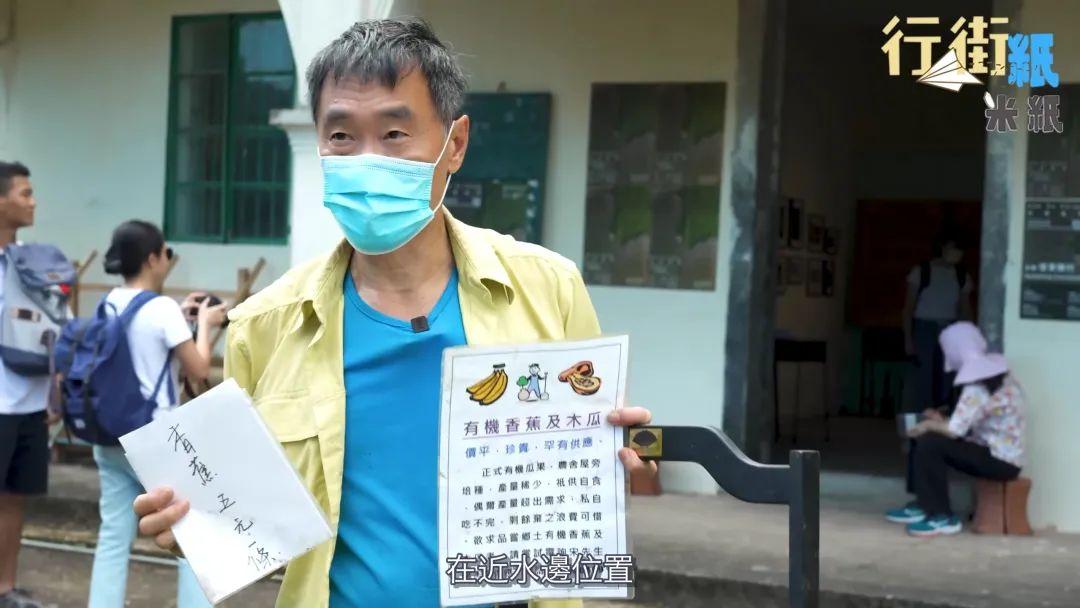 行街紙
米紙
有機香蕉及木瓜
價平、珍貴、罕有供應、
正式有機瓜果,農舍屋旁
培種,產量稀少,祇供自食
,偶爾產量超出需求,私自
吃不完,剩餘棄之浪費可惜
,欲求品嘗鄉土有機香蕉及
請嘗試
宋先生
香蕉五元一條
在近水邊位置